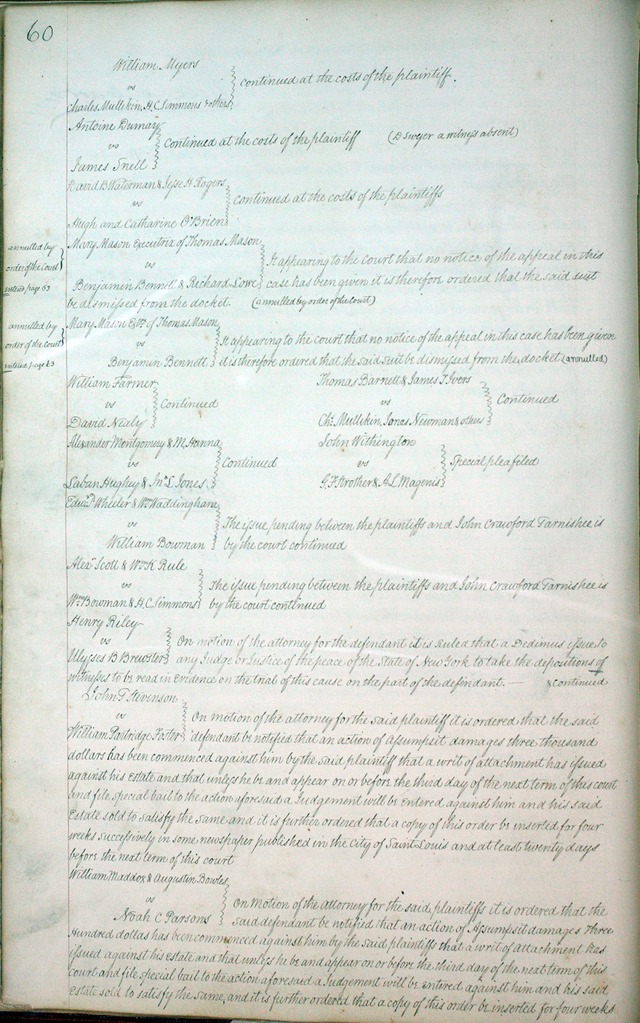 60
William Myers
vs
Charles Mullikin, H. C Simmons & others
continued at the costs of the plaintiff.
Antoine Dumay
vs
James Snell
Continued at the costs of the plaintiff (D Swyer a witness absent)
David B Waterman & Jesse H Rogers
vs
Hugh and Catharine O'Brien
continued at the costs of the plaintiffs
annulled by
order of the Court
entered page 63
Mary Mason Executrix of Thomas Mason
vs
Benjamin Bennett & Richard Lowe
It appearing to the court that no notice of the appeal in this
case has been given it is therefore ordered that the said suit
be dismissed from the docket. (annulled by order of the court)
annulled by
order of the Court
entered page 63
Mary Mason Extx of Thomas Mason
vs
Benjamin Bennett
It appearing to the court that no notice of the appeal in this case has been given
it is therefore ordered that the said suit be dismissed from the docket (annulled)
William Farmer
vs
David Nealy
Continued
Thomas Barnett & James T Ivers
vs
Chs. Mullikin, Jonas Newman & others
Continued
Alexander Montgomery & M. Hanna
vs
Laban Hughey & Jno L Jones
Continued
John Withington
vs
G. F. Brother & A L Magenis
Special plea filed
Edwd. Wheeler & Wm Waddingham
vs
William Bowman
The issue pending between the plaintiffs and John Crawford Garnishee is
by the court continued
Alexr Scott & Wm K Rule
vs
Wm Bowman & H. C Simmons
The issue pending between the plaintiffs and John Crawford Garnishee is
by the court continued
Henry Riley
vs
Ulysses B Brewster
On motion of the attorney for the defendant it is Ruled that a Dedimus issue to
any Judge or Justice of the peace of the State of New York to take the depositions of
witnesses to be read in evidence on the trial of this cause on the part of the defendant. — & Continued
John F Stevenson
vs
William Partridge Foster
On motion of the attorney for the said plaintiff it is ordered that the said
defendant be notified that an action of Assumpsit damages three thousand
dollars has been commenced against him by the said plaintiff that a writ of attachment has issued
against his estate and that unless he be and appear on or before the third day of the next term of this court
and file special bail to the action aforesaid a Judgement will be entered against him and his said
Estate sold to satisfy the same and it is further ordered that a copy of this order be inserted for four
weeks successively in some newspaper published in the city of Saint Louis and at least twenty days
before the next term of this court
William Maddox & Augustin Bowles
vs
Noah C Parsons
On motion of the attorney for the said plaintiffs it is ordered that the
said defendant be notified that an action of Assumpsit damages three
Hundred dollas has been commenced against him by the said plaintiff that a writ of attachment has
issued against his estate and that unless he be and appear on or before the third day of the next term of this
court and file special bail to the action aforesaid a Judgement will be entered against him and his said
Estate sold to satisfy the same, and it is further ordered that a copy of this order be inserted for four weeks